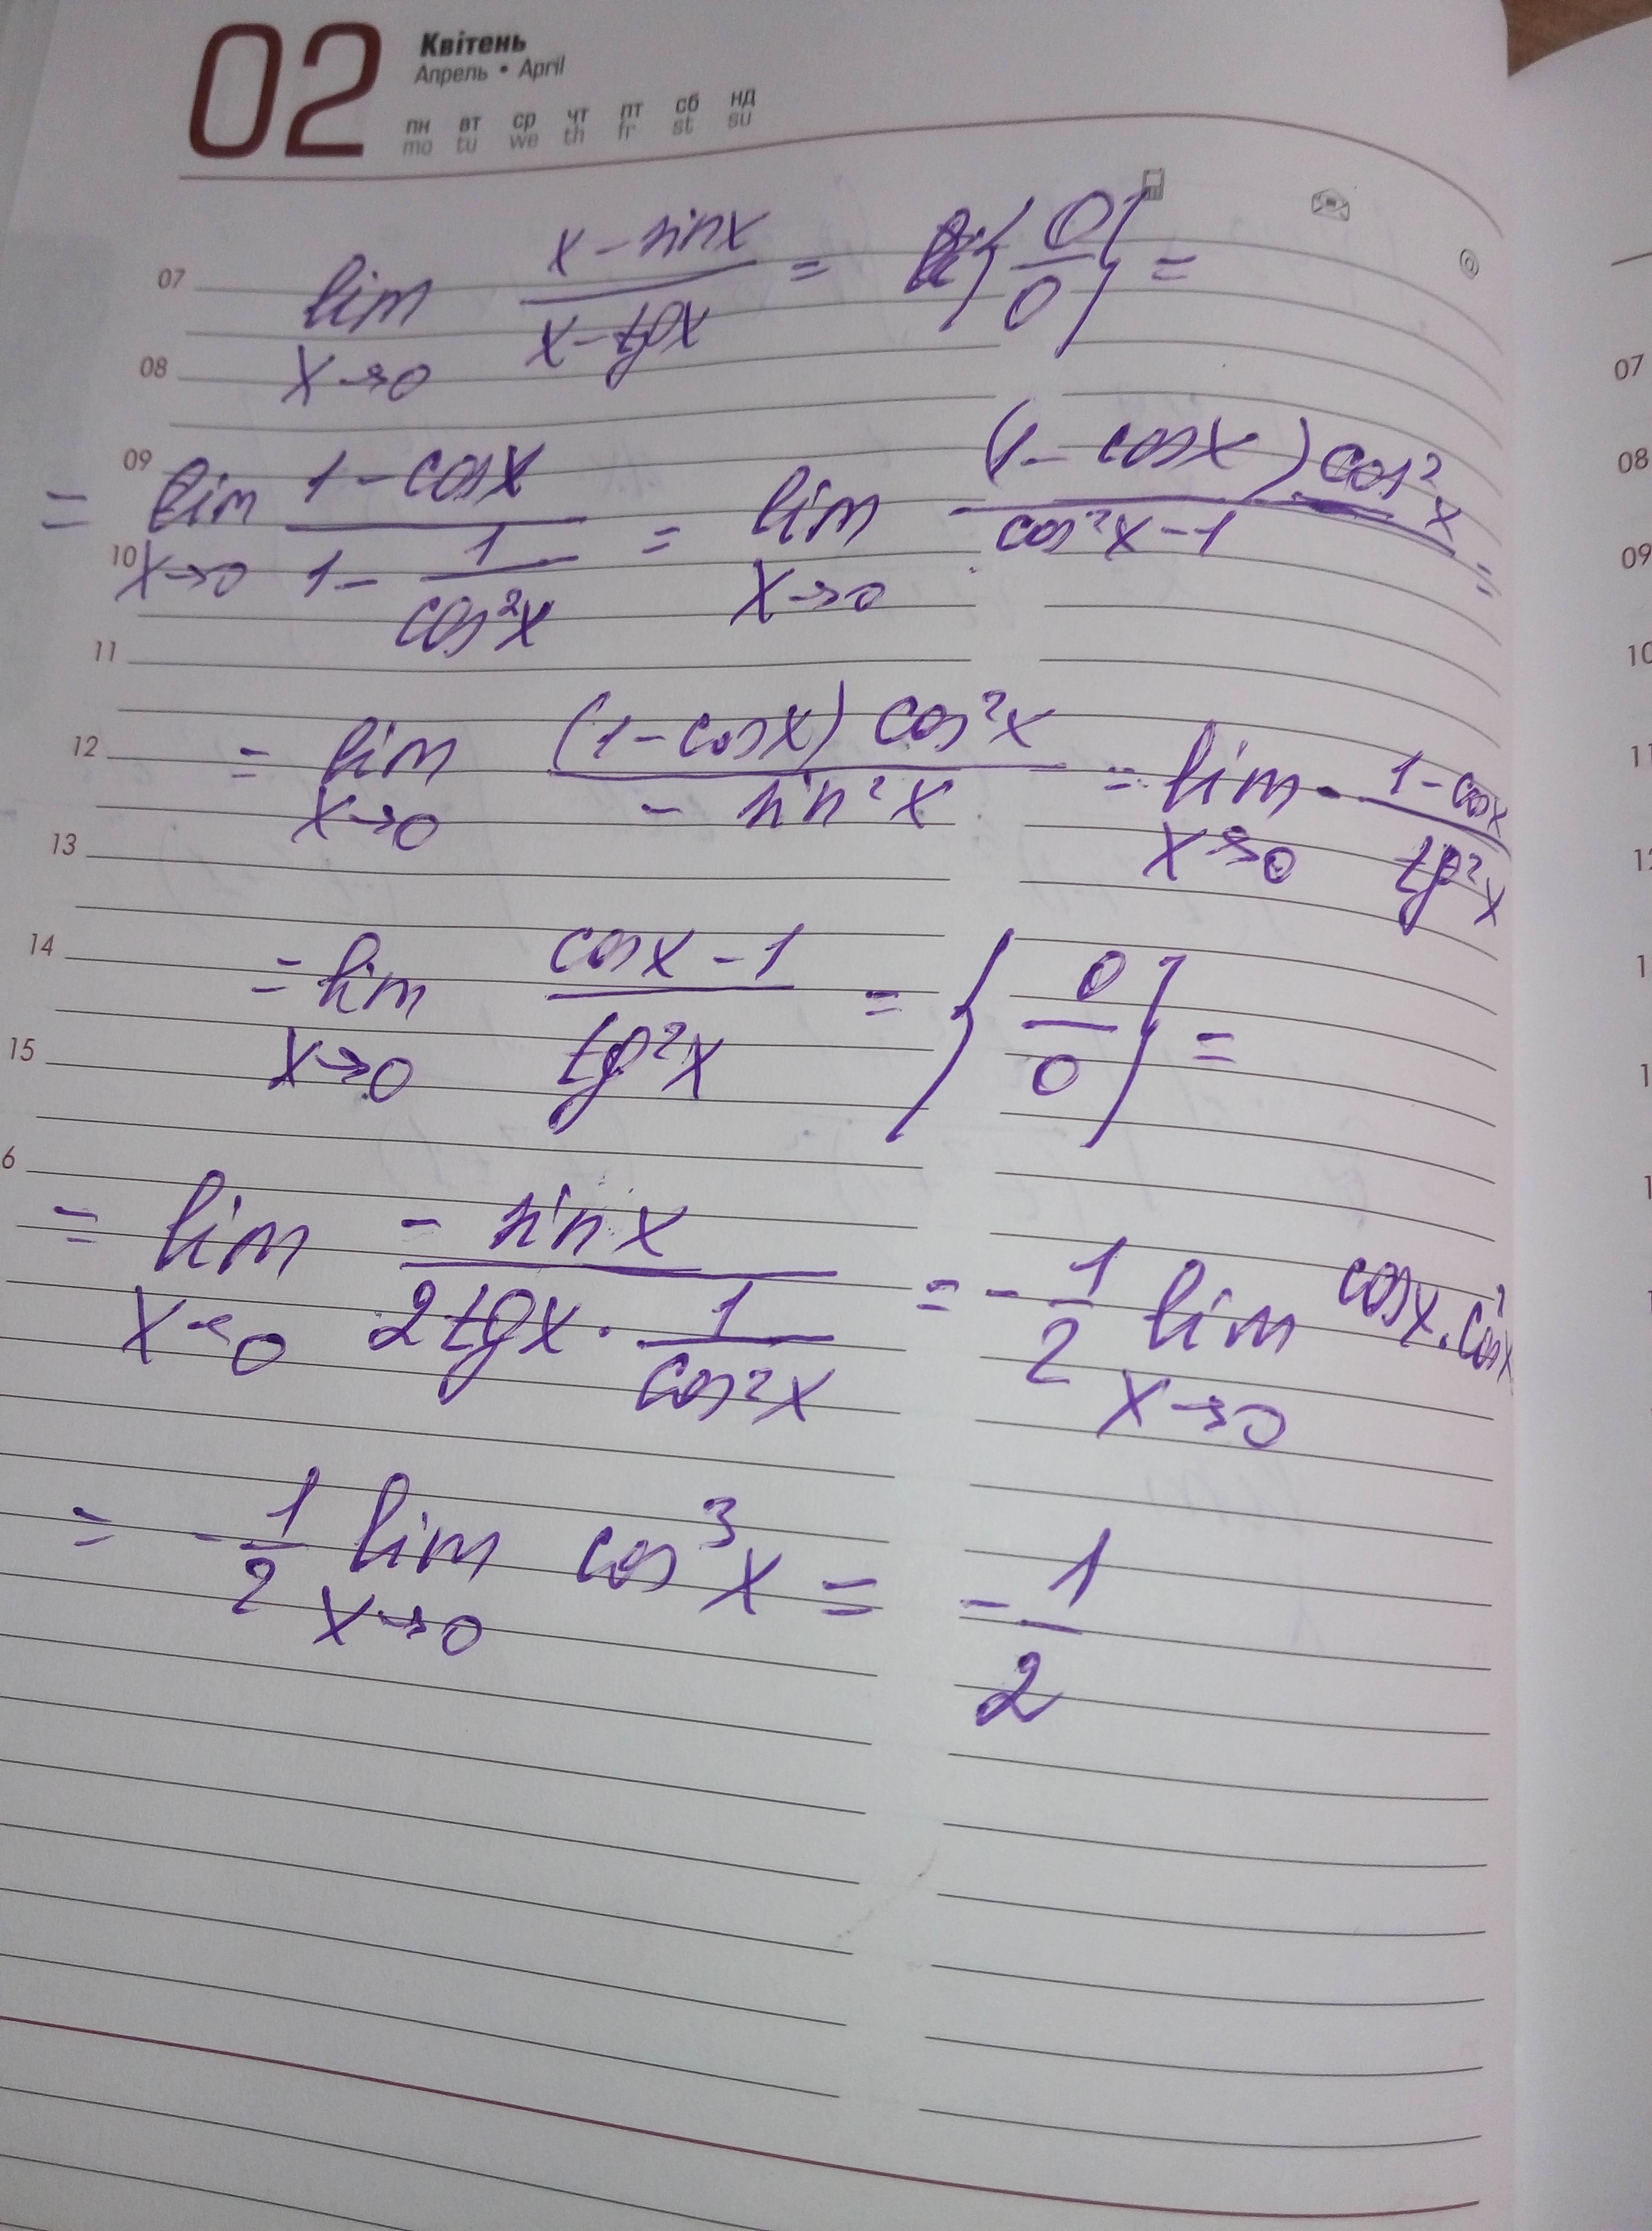 02
Квітень
Апрель • April
пн вт ср чт пт сб нд
mo tu we th fr st su
07 lim x→0 (x - sin x)/(x - tg x) = {0/0} =
08
09 = lim x→0 (1 - cos x)/(1 - 1/cos²x) = lim x→0 ((1 - cos x) cos²x)/(cos²x - 1) =
10
11
12 = lim x→0 ((1 - cos x) cos²x)/(- sin²x) = lim x→0 - (1 - cos x)/(tg²x)
13
14 = lim x→0 (cos x - 1)/(tg²x) = {0/0} =
15
6 = lim x→0 (- sin x)/(2 tg x · 1/cos²x) = - 1/2 lim x→0 cos x · cos²x
= - 1/2 lim x→0 cos³x = - 1/2
07
08
09
10
11